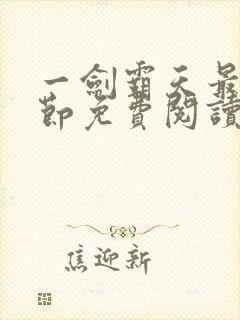 一劍霸天最
節免費閱讀
焦迎新